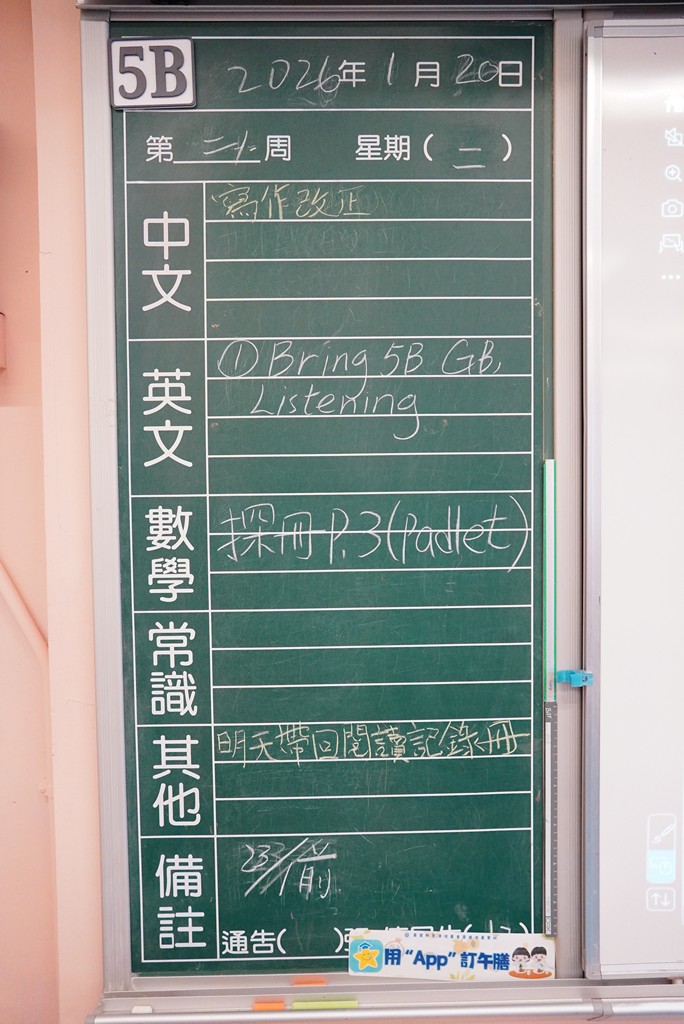 5B
2026年1月20日
第二十周 星期(二)
中文
寫作改正
英文
① Bring 5B GB,
Listening
數學
探冊 P.3 (Padlet)
常識
其他
明天帶回閱讀記錄冊
備註
23/1前
通告( )張
用 “App” 訂午膳